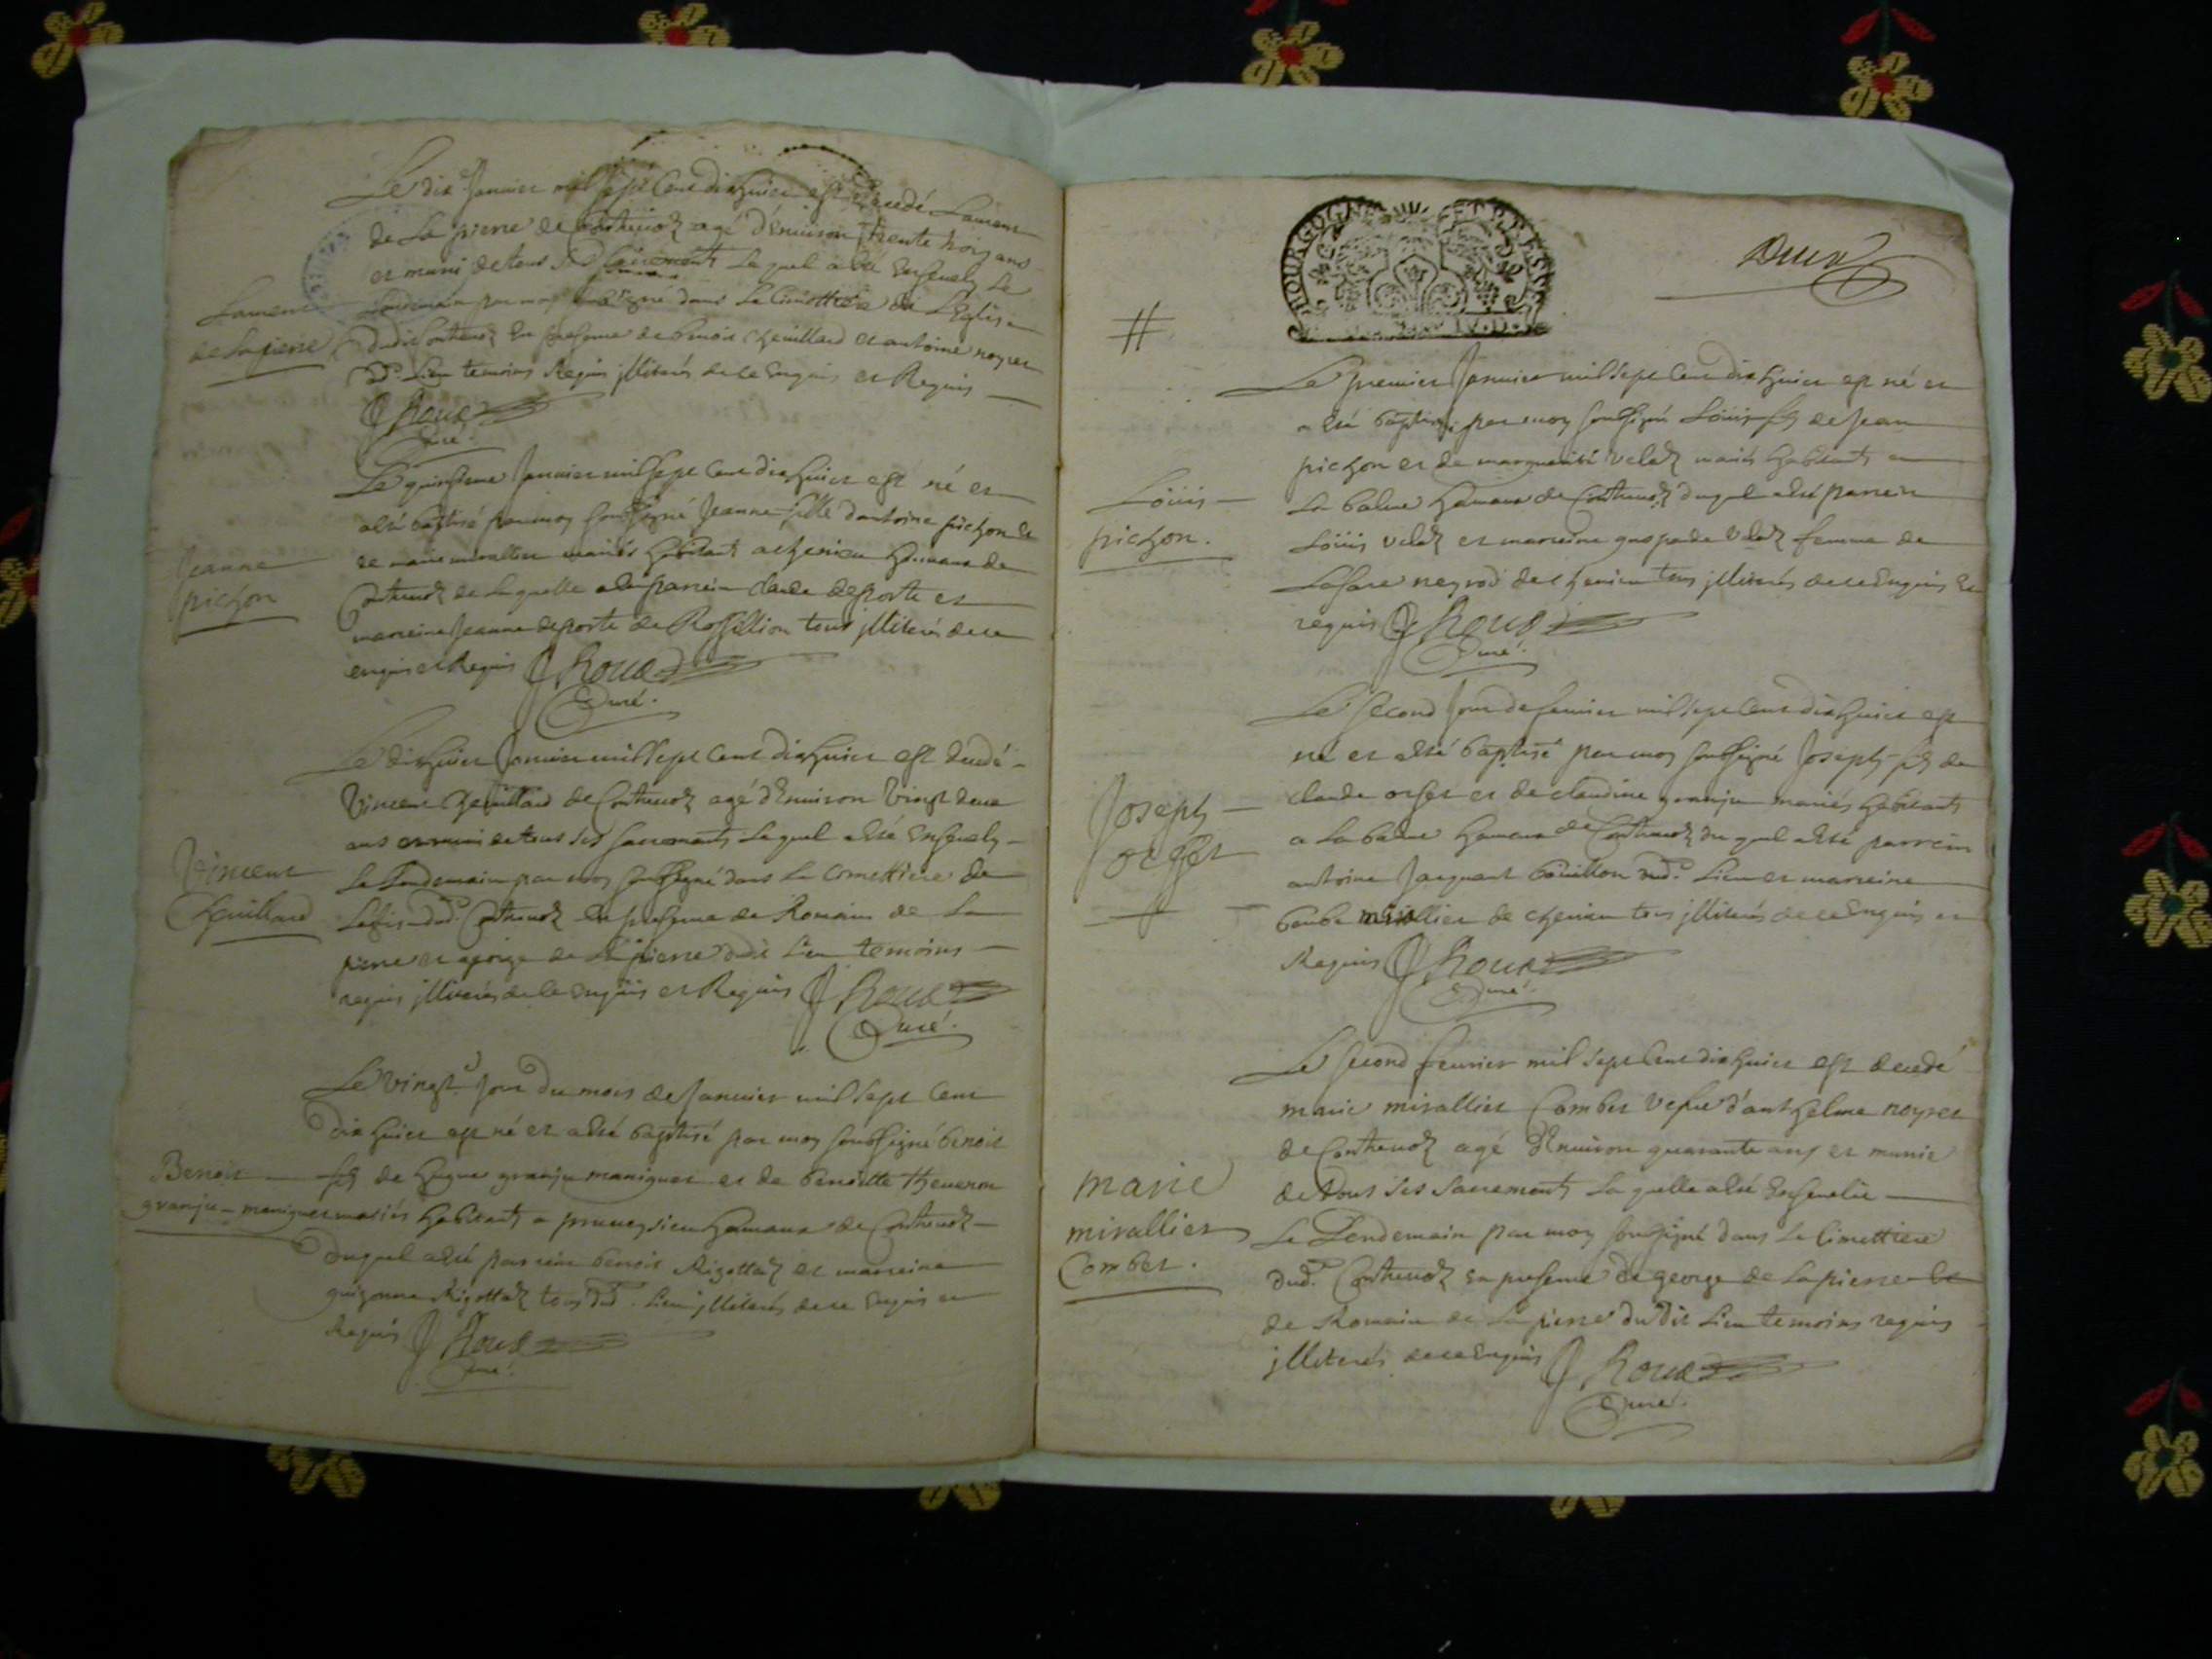 Le dix Janvier mil sept Cent dixhuict est decedé Laurent
de La pierre de Contreuoz agé d'Enuiron trente trois ans
et muni de tous ses sacrements Lequel a été Enseuely Le
Lendemain par moy soussigné dans Le Cimettiere de L'Eglise
dudit Contreuoz En presence de benoit cheuillard et antoine noyret
dud. Lieu temoins Requis jlliterés de ce Enquis et Requis
Laurent
de La pierre
J Roux
Curé.
Le quinsieme Janvier mil sept Cent dixhuict est né et
a été baptisé par moy soussigné Jeanne fille d'antoine pichon et
de marie mirallier mariés habitants a chenieu hamaux de
Contreuoz de Laquelle a été parrein claude deporte et
marreine Jeanne deporte de Rossillion tous jlliterés de ce
enquis et Requis J Roux
Curé.
Jeanne
pichon
Le dixhuict Janvier mil sept Cent dixhuict est decedé
Vincent cheuillard de Contreuoz agé d'Enuiron Vingt deux
ans et muni de tous ses sacrements Lequel a été Enseuely
Le Lendemain par moy soussigné dans Le Cimettiere de
Leglise dud. Contreuoz En presence de Romain de La
pierre et george de La pierre dudit Lieu temoins
requis jlliterés de ce Enquis et Requis J Roux
Curé.
Vincent
Cheuillard
Le vingt. Jour du mois de Januier mil sept Cent
dixhuict est né et a été baptisé par moy soussigné benoit
fils de hugue granju maniguet et de benoitte Theuenon
mariés habitants a pruneysieu hamaux de Contreuoz
duquel a été parrein benoit Rigottaz et marreine
guigonne Rigottaz tous dud. Lieu jlliterés de ce Enquis et
Requis J Roux
Curé.
Benoit
granju-maniguet
BOURGOGNE ET BRESSE
Deux
#
Le premier Januier mil sept Cent dixhuict est né et
a été baptisé par moy soussigné Loüis fils de Jean
pichon et de marguerite velaz mariés habitants a
La balme hamaux de Contreuoz duquel a été parrein
Loüis velaz et marreine velaz femme de
Lasare neyrod de chenieu tous jlliterés de ce Enquis et
requis J Roux
Curé.
Loüis
pichon.
Le second Jour de feurier mil sept Cent dixhuict est
né et a été baptisé par moy soussigné Joseph fils de
claude orset et de claudine granju mariés habitants
a La balme hamaux de Contreuoz duquel a été parrein
antoine Jacquent bouillon dud. Lieu et marreine
benoite mirallier de chenieu tous jlliterés de ce Enquis et
Requis J Roux
Curé.
Joseph
orset
Le second feurier mil sept Cent dixhuict est decedé
marie mirallier Combet Vefue d'anthelme noyret
de Contreuoz agé d'Enuiron quarante ans et munie
de tous ses sacrements Laquelle a été Enseuelie
Le Lendemain par moy soussigné dans Le Cimettiere
dud. Contreuoz En presence de george de La pierre et
de Romain de La pierre du dit Lieu temoins requis
jlliterés de ce Enquis J Roux
Curé.
marie
mirallier
Combet.